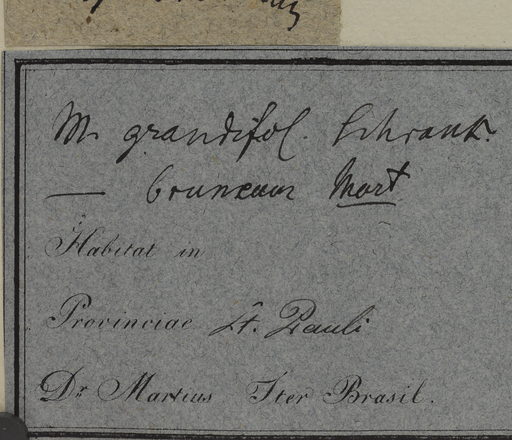 M. grandifol. Schrank.
— bruneum Mart
Habitat in
Provinciae St. Pauli
Dr. Martius Iter Brasil.